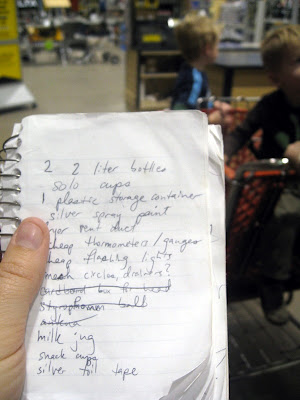 2 2 liter bottles
solo cups
1 plastic storage container
silver spray paint
dryer vent duct
cheap thermometers/gauges
cheap flashing lights
mesh circles, drainers?
cardboard box for head
styrofoam ball
milk jug
snack cups
silver foil tape